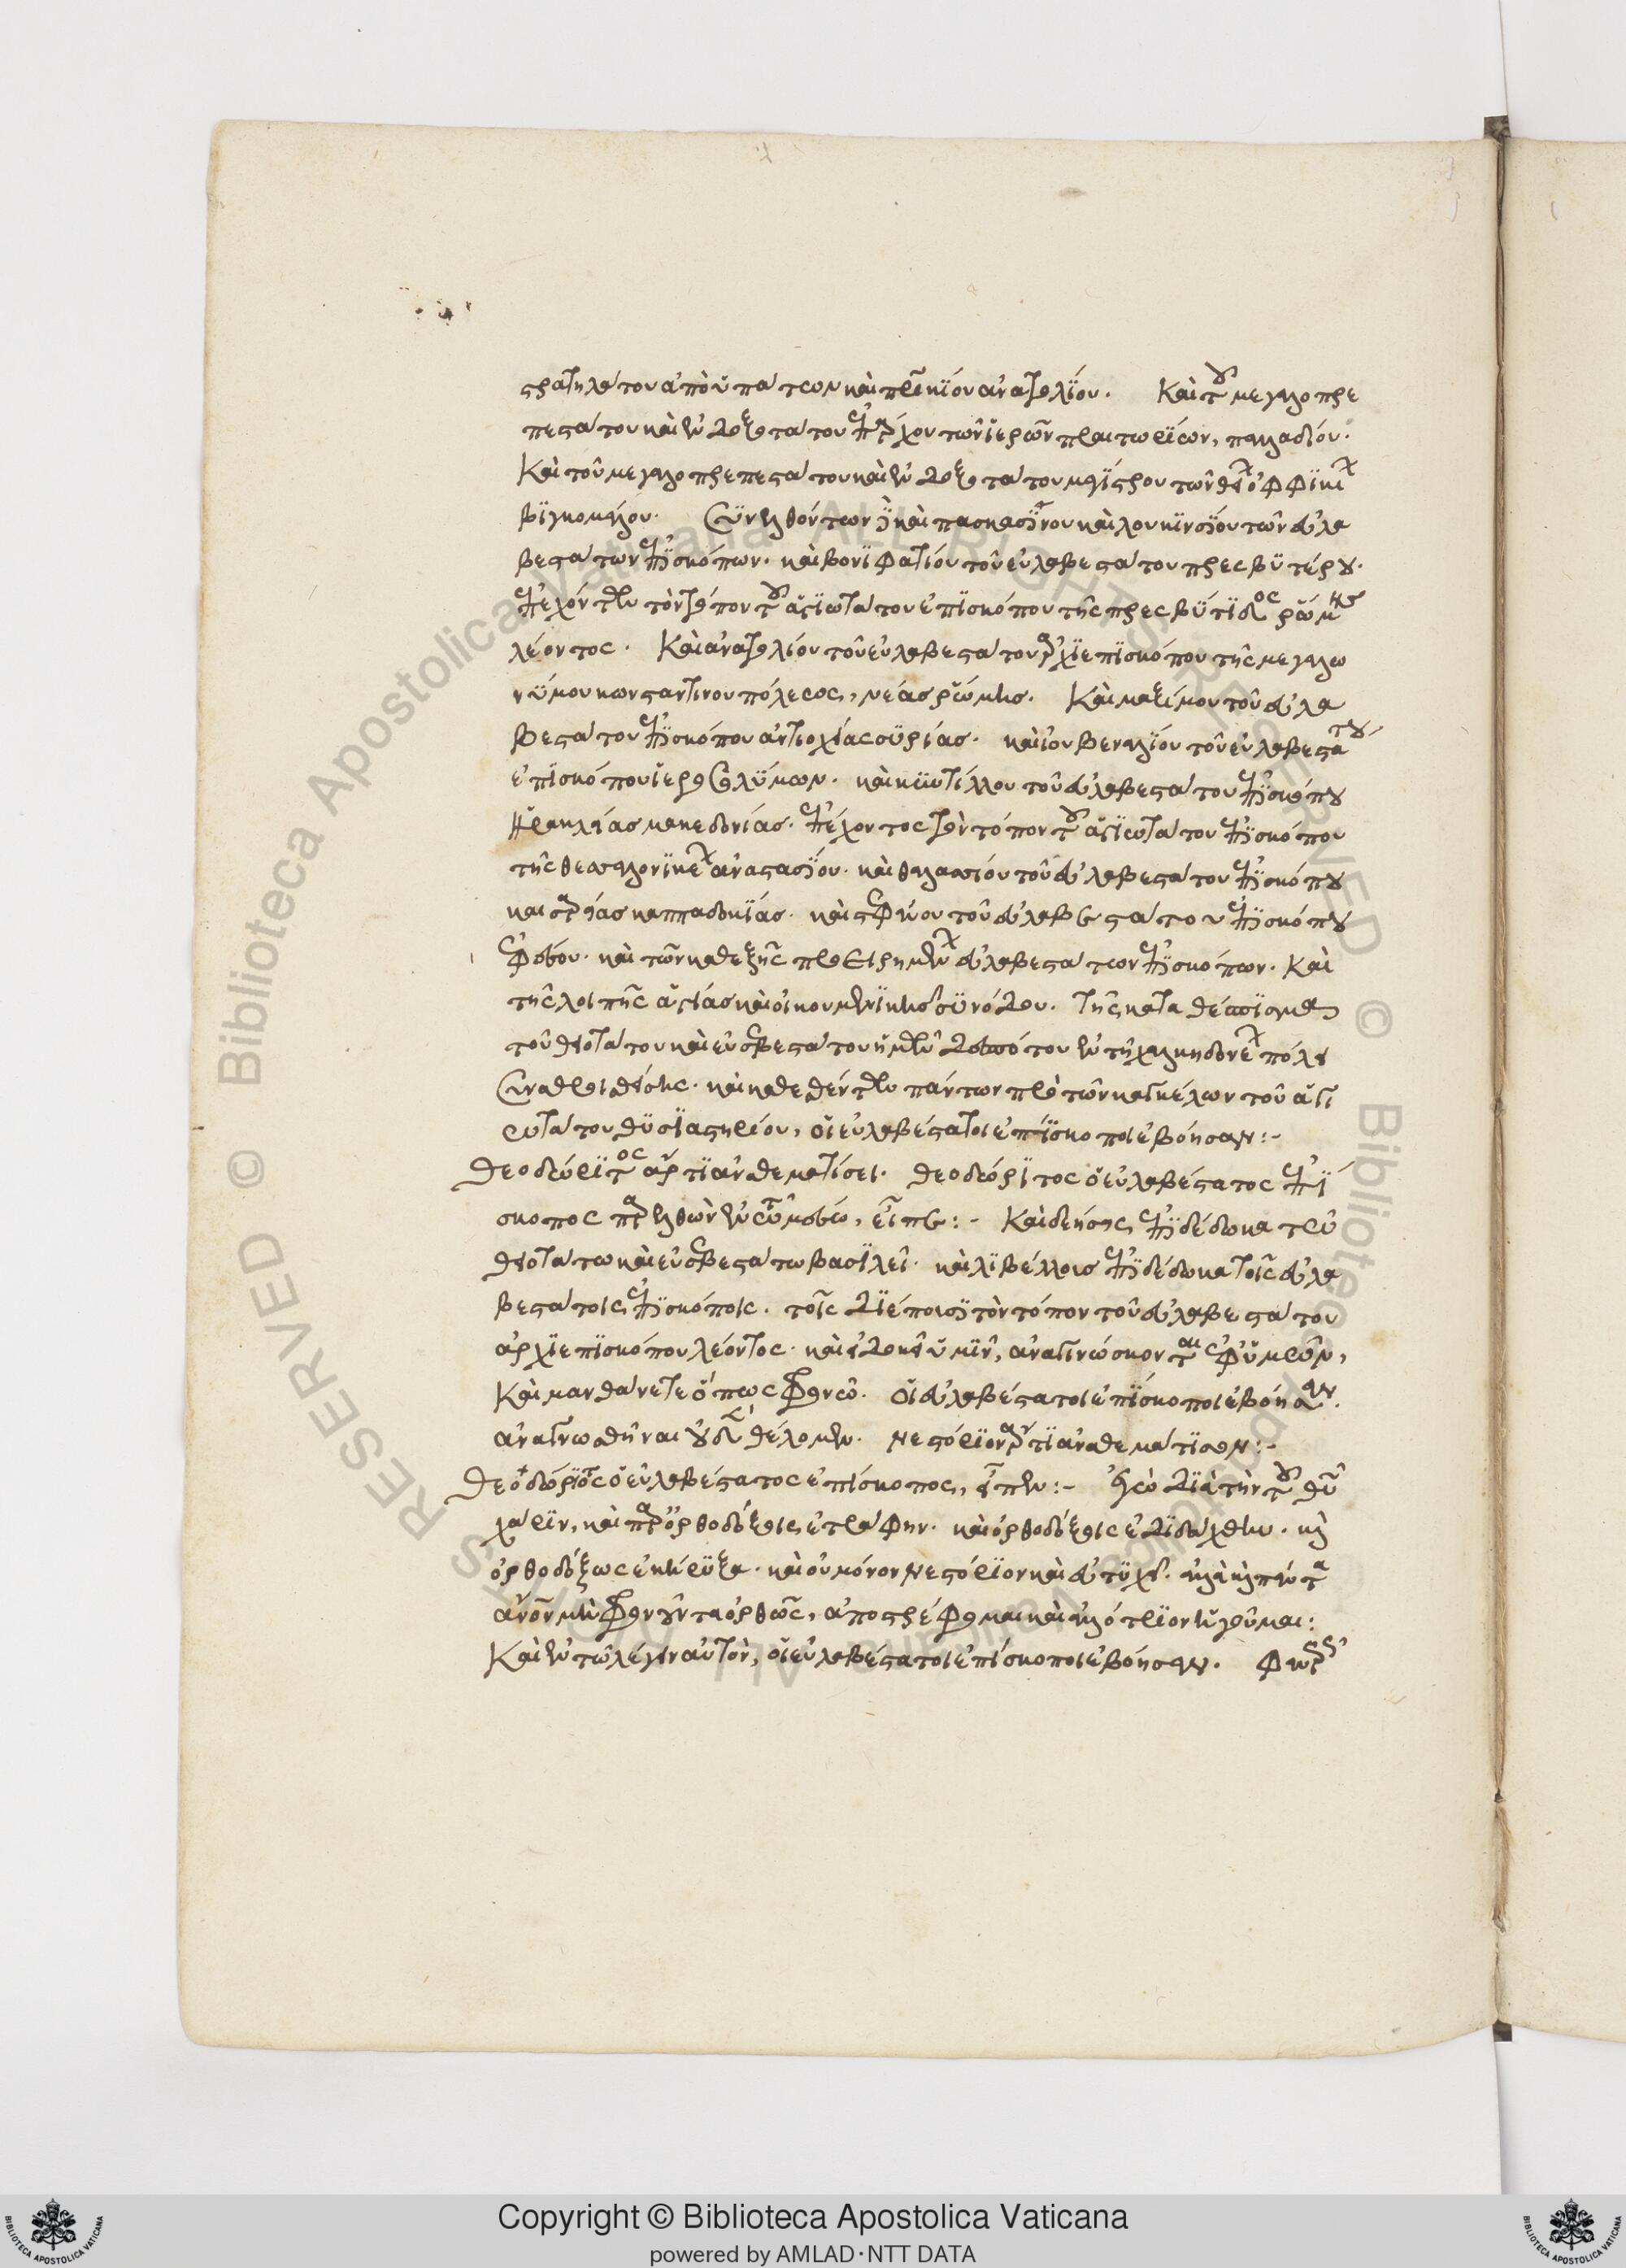 στρατηλάτου ἀπὸ ὑπάτων καὶ πατρικίου ἀνατολίου. Καὶ τοῦ μεγαλοπρε
πεστάτου καὶ ἐνδοξοτάτου ἐπάρχου τῶν ἱερῶν πραιτωρίων, παλλαδίου.
Καὶ τοῦ μεγαλοπρεπεστάτου καὶ ἐνδοξοτάτου μαγίστρου τῶν θείων ὀφφικίων
βιγκομάλου. Συνελθόντων καὶ πασκασίνου καὶ λουκινσίου τῶν εὐλα
βεστάτων ἐπισκόπων. καὶ βονιφατίου τοῦ εὐλαβεστάτου πρεσβυτέρου.
ἐπεχόντων τὸν τόπον τοῦ ἁγιωτάτου ἐπισκόπου τῆς πρεσβύτιδος ῥώμης
λέοντος. Καὶ ἀνατολίου τοῦ εὐλαβεστάτου ἀρχιεπισκόπου τῆς μεγαλω
νύμου κωνσταντινουπόλεως, νέας ῥώμης. Καὶ μαξίμου τοῦ εὐλα
βεστάτου ἐπισκόπου ἀντιοχείας συρίας. καὶ ἰουβεναλίου τοῦ εὐλαβεστάτου
ἐπισκόπου ἱεροσολύμων. καὶ κυιντίλλου τοῦ εὐλαβεστάτου ἐπισκόπου
Ἡρακλείας μακεδονίας. ἐπέχοντος τὸν τόπον τοῦ ἁγιωτάτου ἐπισκόπου
τῆς θεσσαλονικέων ἀναστασίου. καὶ θαλασσίου τοῦ εὐλαβεστάτου ἐπισκόπου
καισαρείας καππαδοκίας. καὶ στεφάνου τοῦ εὐλαβεστάτου ἐπισκόπου
ἐφέσου. καὶ τῶν καθεξῆς προειρημένων εὐλαβεστάτων ἐπισκόπων. Καὶ
τῆς λοιπῆς ἁγίας καὶ οἰκουμενικῆς συνόδου. τῆς κατὰ θέσπισμα
τοῦ θειοτάτου καὶ εὐσεβεστάτου ἡμῶν δεσπότου ἐν τῇ χαλκηδονέων πόλει
συναθροισθείσης. καὶ καθεσθέντων πάντων πρὸ τῶν καγκέλων τοῦ ἁγι
ωτάτου θυσιαστηρίου, οἱ εὐλαβέστατοι ἐπίσκοποι ἐβόησαν:-
Θεοδώριτος ἄρτι ἀναθεματίσει. Θεοδώριτος ὁ εὐλαβέστατος ἐπί
σκοπος παρελθὼν ἐν τῷ μέσῳ, εἶπε:- Καὶ δεήσεις ἐπιδέδωκα τῷ
θειοτάτω καὶ εὐσεβεστάτω βασιλεῖ. καὶ λιβέλλους ἐπιδέδωκα τοῖς εὐλα
βεστάτοις ἐπισκόποις. τοῖς διέπουσι τὸν τόπον τοῦ εὐλαβεστάτου
ἀρχιεπισκόπου λέοντος. καὶ εἰ δοκεῖ ὑμῖν, ἀναγινώσκονται ἐφ' ὑμῶν,
Καὶ μανθάνετε ὅπως φρονῶ. Οἱ εὐλαβέστατοι ἐπίσκοποι ἐβόησαν.
ἀναγνωσθῆναι οὐδὲν θέλομεν. Νεστόριον ἄρτι ἀναθεμάτισον:-
Θεοδώριτος ὁ εὐλαβέστατος ἐπίσκοπος, εἶπεν:- Ἐγὼ διὰ τὴν τοῦ θεοῦ
χάριν, καὶ παρὰ ὀρθοδόξοις ἐτράφην. καὶ ὀρθοδόξοις ἐδιδάχθην. καὶ
ὀρθοδόξως ἐκήρυξα. καὶ οὐ μόνον Νεστόριον καὶ εὐτυχέα. ἀλλὰ καὶ πάντα
ἄνθρωπον μὴ φρονοῦντα ὀρθῶς, ἀποστρέφομαι καὶ ἀλλότριον ἡγοῦμαι:
Καὶ ἐν τῷ λέγειν αὐτὸν, οἱ εὐλαβέστατοι ἐπίσκοποι ἐβόησαν.